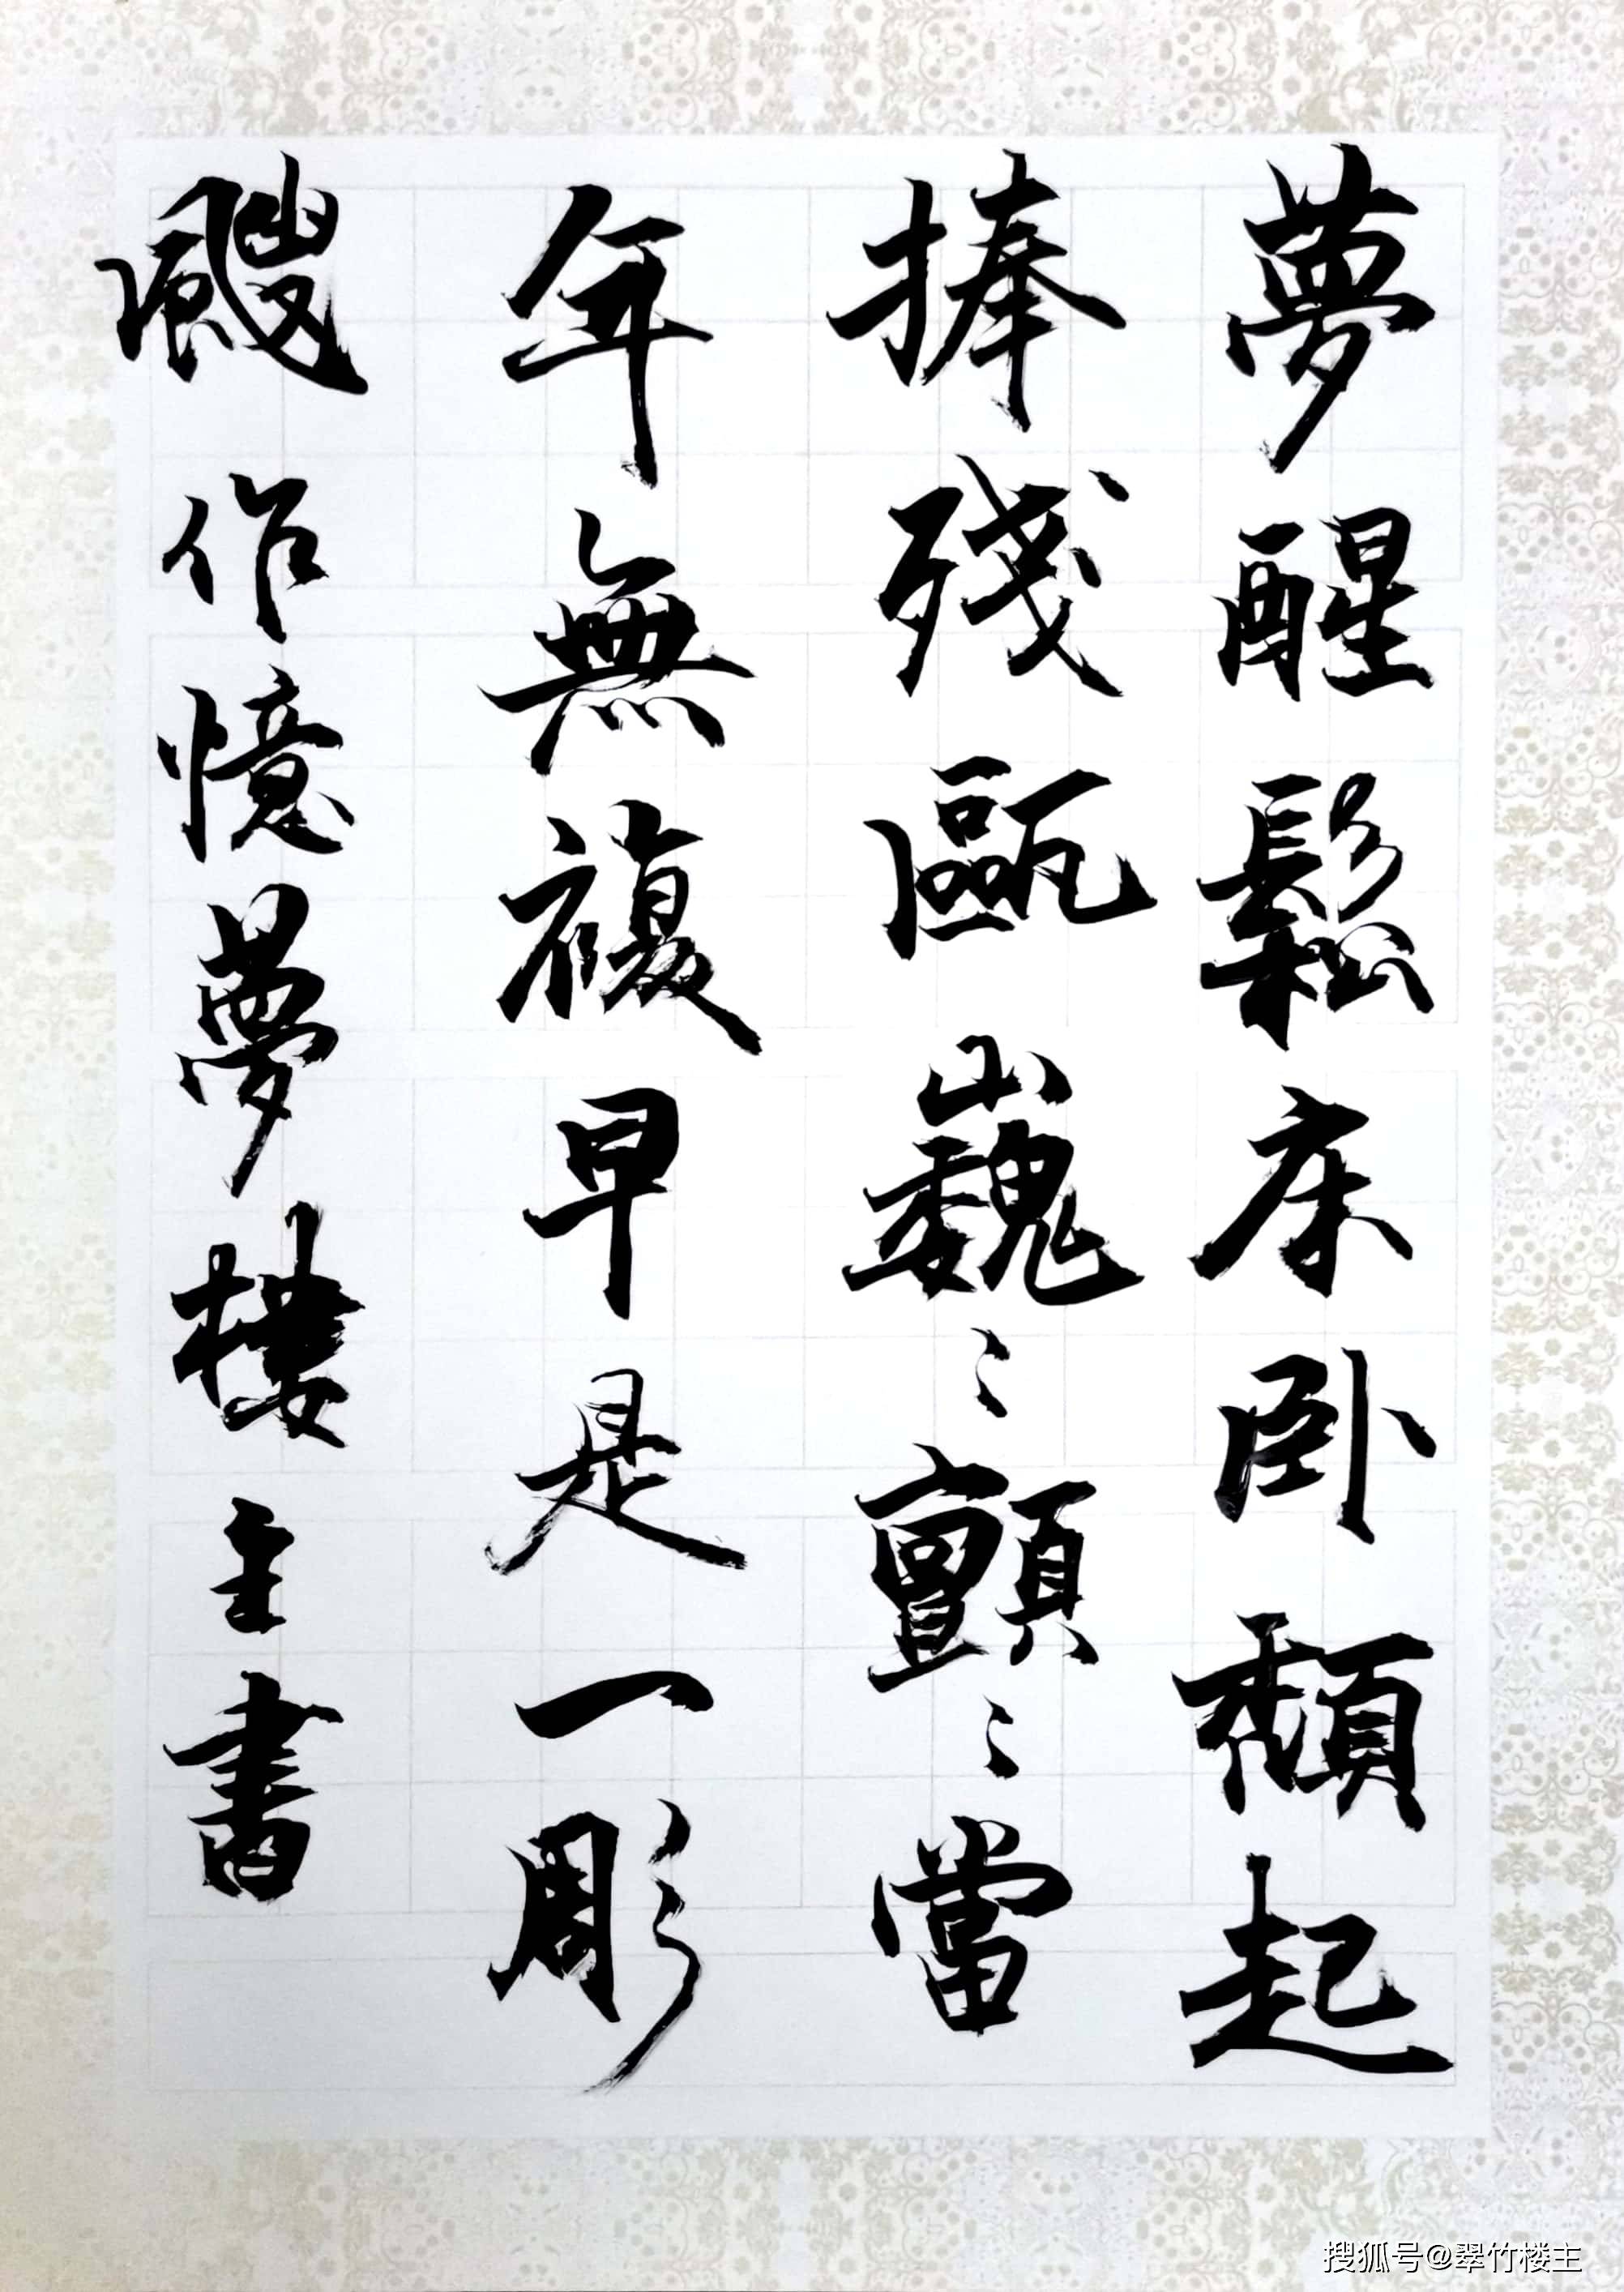 夢醒鬆床卧頹起
捧殘甌巍〻顫〻當
年無複早是一彫
颼作憶夢樓主書
搜狐号@翠竹楼主